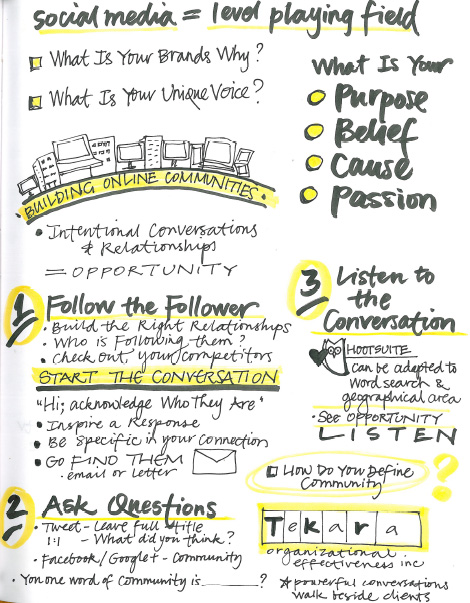 social media = level playing field
What Is Your Brands Why?
What Is Your Unique Voice?
What Is Your
Purpose
Belief
Cause
Passion
BUILDING ONLINE COMMUNITIES
• Intentional Conversations
& Relationships
= OPPORTUNITY
1 Follow the Follower
• Build the Right Relationships
• Who is Following them?
• Check out your competitors
START THE CONVERSATION
"Hi; acknowledge Who They Are"
• Inspire a Response
• Be Specific in your Connection
• GO FIND THEM
• email or letter
2 Ask Questions
• Tweet - Leave full title
1:1 - What did you think?
• Facebook/Google+ - Community
• You one word of Community is ____?
3 Listen to
the
Conversation
HOOTSUITE
can be adapted to
word search &
geographical area
• SEE OPPORTUNITY
LISTEN
How Do You Define
Community ?
Tekara
organizational
effectiveness inc
* powerful conversations
walk beside clients